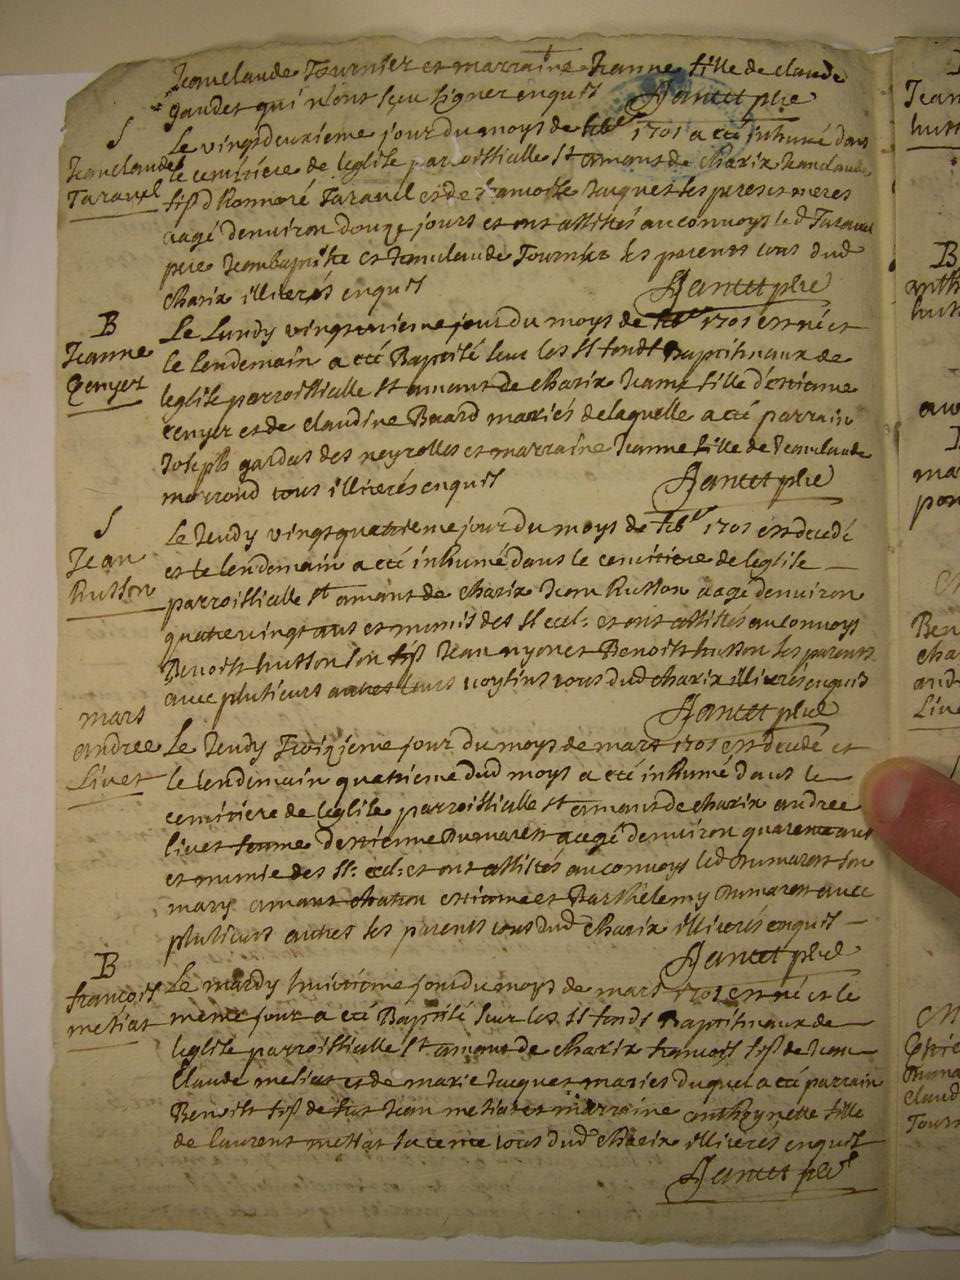 Jeanclaude Tournier et marraine Jeanne fille de claude
gaudet qui n'ont sceu signer enquis Jantet pbre
S
Jeanclaude
Taravel
Le vingtdeuxieme jour du moys de feb.er 1701 a eté inhumé dans
le cemitiere de leglise parroissialle St amant de charix Jeanclaude
fils d'honnoré Taravel et de francoise Jacquet ses pere et meres
aagé denviron douze jours et ont assistés au convoys led Taravel
pere Jeanbaptiste et Jeanclaude Tournier ses parents tous dud
charix illiterés enquis Jantet pbre
B
Jeanne
Cenyer
Le Lundy vingtunieme jour du moys de feb.er 1701 est né et
le lendemain a eté Baptisé sur les Sts fonds Baptismaux de
leglise parroissialle St amant de charix Jeanne fille d'estienne
Cenyer et de claudine Buard mariés de laquelle a eté parrain
Joseph gardas des neyrolles et marraine Jeanne fille de Jeanclaude
tous illiterés enquis Jantet pbre
S
Jean
Husson
Le Jeudy vingtquatrieme jour du moys de feb.er 1701 est decedé
et le lendemain a eté inhumé dans le cemitiere de leglise
parroissialle St amant de charix Jean Husson aagé denviron
quatrevingt ans et munis des Sts ecel: et ont assistés au convoys
Benoist husson son fils Jean nyon et Benoist husson ses parents
avec plusieurs autres leurs voysins tous dud charix illiterés enquis
Jantet pbre
mars
andree
Livet
Le Jeudy Troizieme jour du moys de mars 1701 est decedé et
le lendemain quatrieme dud moys a eté inhumé dans le
cemitiere de leglise parroissialle St amant de charix andree
livet femme destienne Dumarest aagé denviron quarente ans
et munie des Sts: ecel: et ont assistés au convoys led Dumarest son
mary amant estienne et Barthelemy Dumarest avec
plusieurs autres ses parents tous dud charix illiterés enquis
Jantet pbre
B
francois
metias
Le mardy huictieme jour du moys de mars 1701 est né et le
meme jour a eté Baptisé sur les Sts fonds Baptismaux de
leglise parroissialle St amant de charix francois fils de Jean
Claude metias et de marie Jacquet mariés duquel a eté parrain
Benoist fils de fut Jean metias et marraine anthoynette fille
de laurent metias sa tante tous dud charix illiterés enquis
Jantet pbre